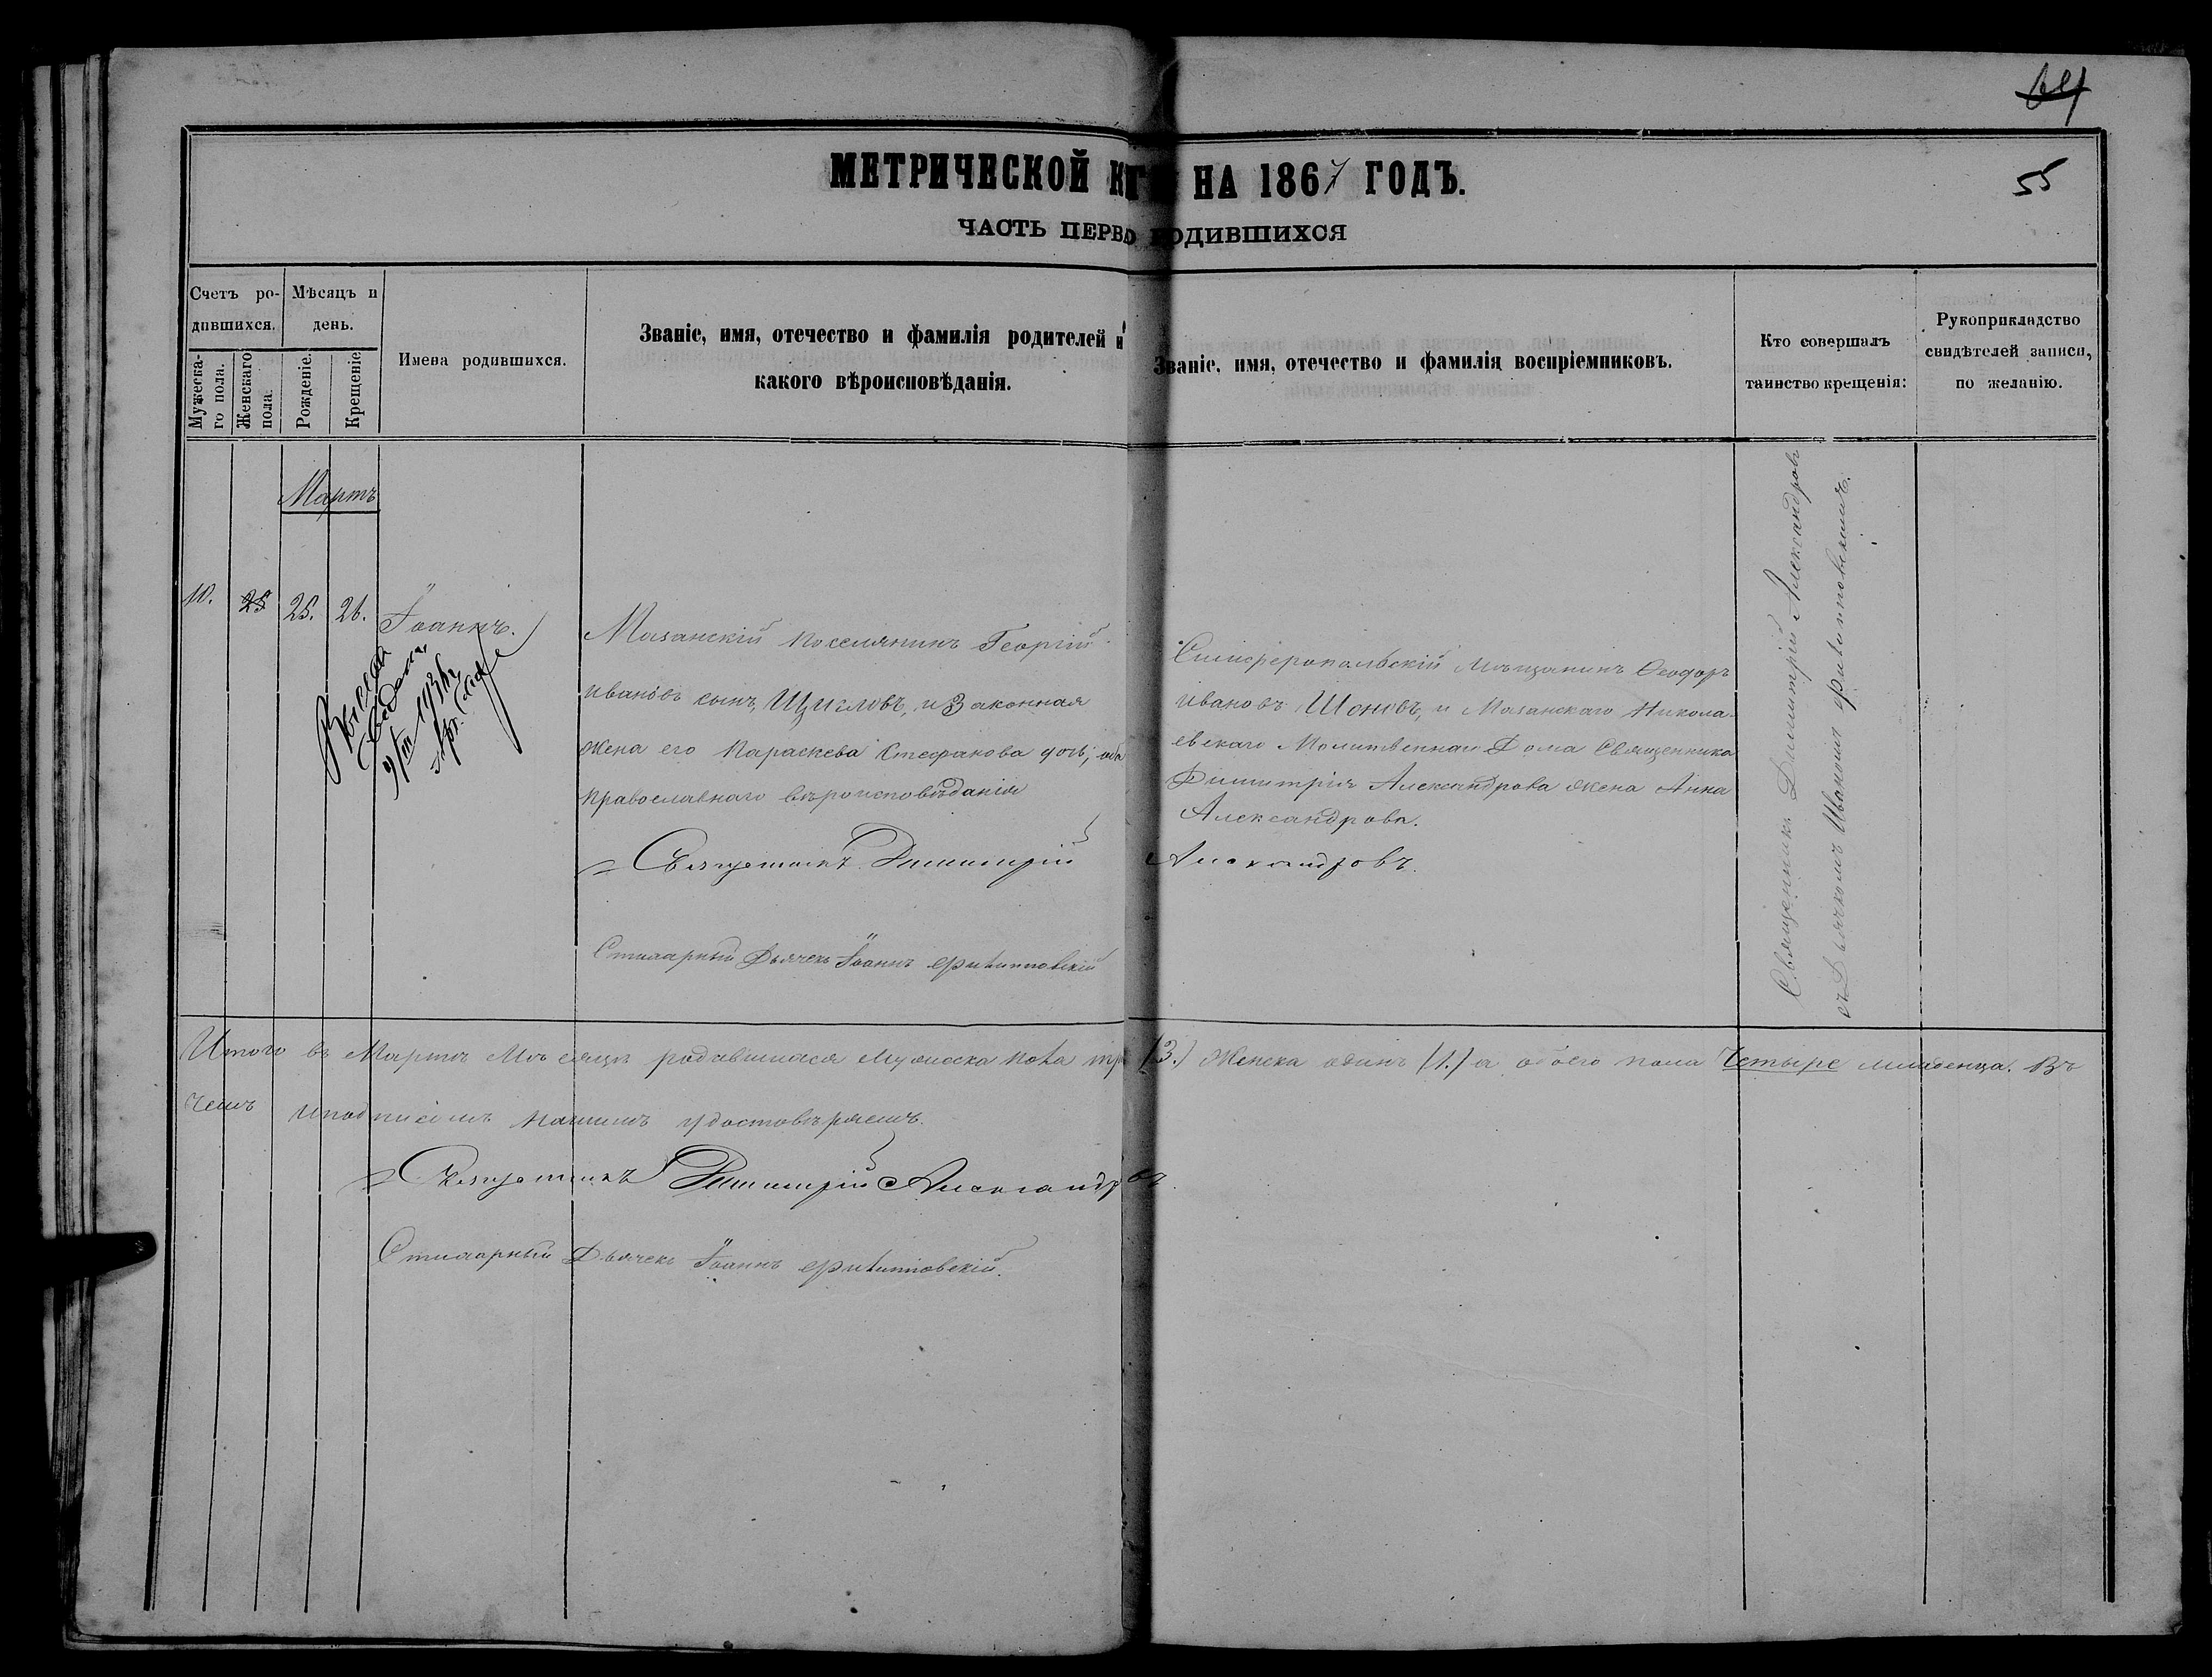 55
МЕТРИЧЕСКОЙ НА 1867 ГОДЪ.
ЧАСТЬ ПЕРВО РОДИВШИХСЯ
Счетъ ро-
дившихся.
Мужеска-
го пола.
Женскаго
пола.
Мѣсяцъ и
день.
Рожденіе.
Крещеніе
Имена родившихся.
Званіе, имя, отечество и фамилія родителей и
какого вѣроисповѣданія.
Званіе, имя, отечество и фамилія воспріемниковъ.
Кто совершалъ
таинство крещенія:
Рукоприкладство
свидѣтелей записи,
по желанію.
Мартъ
10.
25
25.
26.
Іоаннъ.
Мазанскій поселянинъ Георгій
Ивановъ сынъ, Щигловъ, и Законная
жена его Параскева Стефанова дочь, оба
православнаго вѣроисповѣданія
Священникъ Димитрій Александровъ.
Дьячекъ Іоаннъ Филипповскій
Симферопольскій Мѣщанинъ Ѳеодоръ
Ивановъ Шоновъ, и Мазанскаго Никола-
евскаго Молитвеннаго Дома Священника
Димитрія Александрова жена Анна
Александрова.
Священникъ Димитрій Александровъ
съ Дьячкомъ Иваномъ Филипповскимъ.
Итого въ Мартѣ Мѣсяцѣ родившихся мужеска пола тр (3.) Женска одинъ (1.) а обоего пола Четыре младенца. Въ
чемъ и подписомъ нашимъ удостовѣряемъ.
Священникъ Димитрій Александровъ
Дьячекъ Іоаннъ Филипповскій.